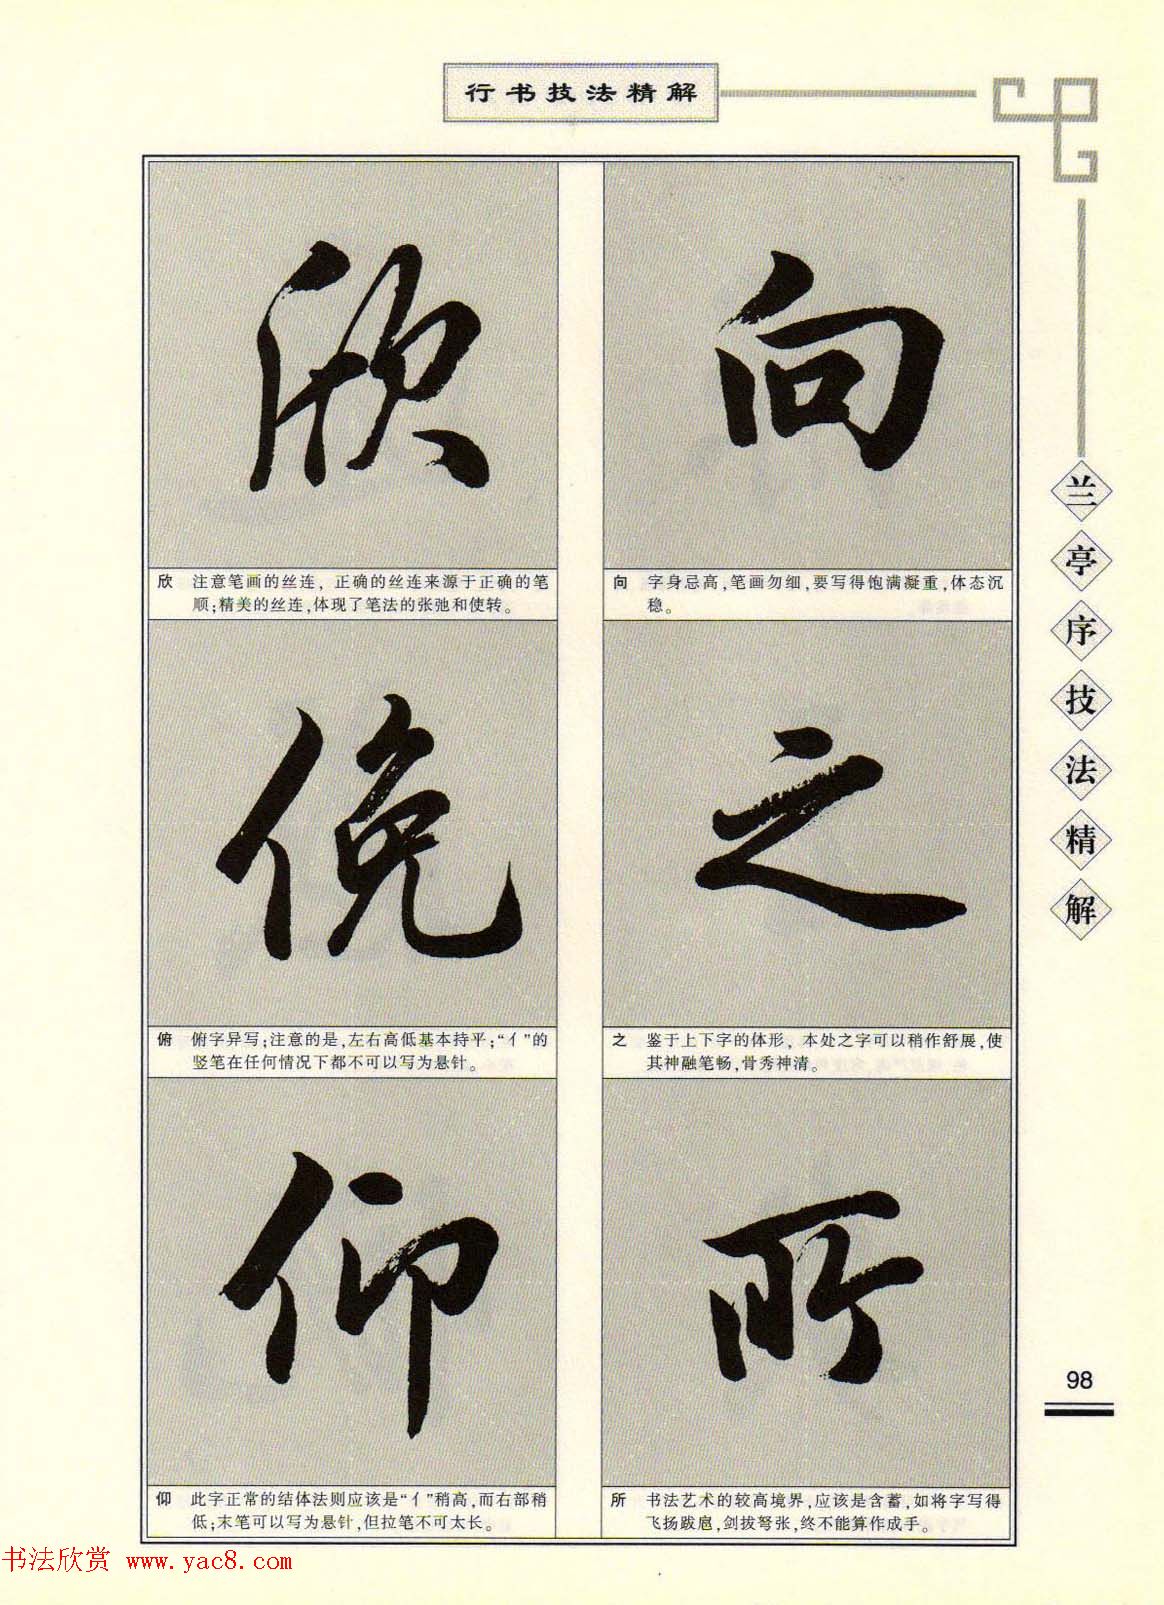 行书技法精解
向
向 字身忌高,笔画勿细,要写得饱满凝重,体态沉
稳。
之
之 鉴于上下字的体形,本处之字可以稍作舒展,使
其神融笔畅,骨秀神清。
所
所 书法艺术的较高境界,应该是含蓄,如将字写得
飞扬跋扈,剑拔弩张,终不能算作成手。
欣
欣 注意笔画的丝连,正确的丝连来源于正确的笔
顺;精美的丝连,体现了笔法的张弛和使转。
俛
俯 俯字异写;注意的是,左右高低基本持平;“亻”的
竖笔在任何情况下都不可以写为悬针。
仰
仰 此字正常的结体法则应该是“亻”稍高,而右部稍
低;末笔可以写为悬针,但拉笔不可太长。
兰亭序技法精解
98
书法欣赏 www.yac8.com